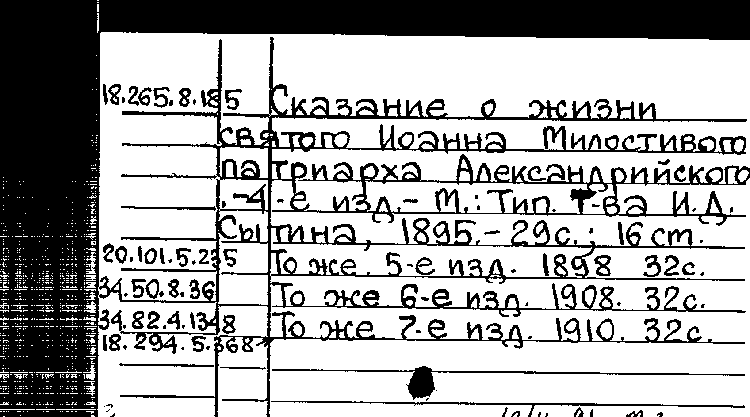 18.265.8.185 Сказание о жизни
святого Иоанна Милостивого
патриарха Александрийского
.-4-е изд.- М.: Тип. Т-ва И.Д.
Сытина, 1895.- 29с.; 16 ст.
20.101.5.235 То же. 5-е изд. 1898 32с.
34.50.8.36 То же 6-е изд. 1908. 32с.
34.82.4.1348 То же 7-е изд. 1910. 32с.
18.294.5.368